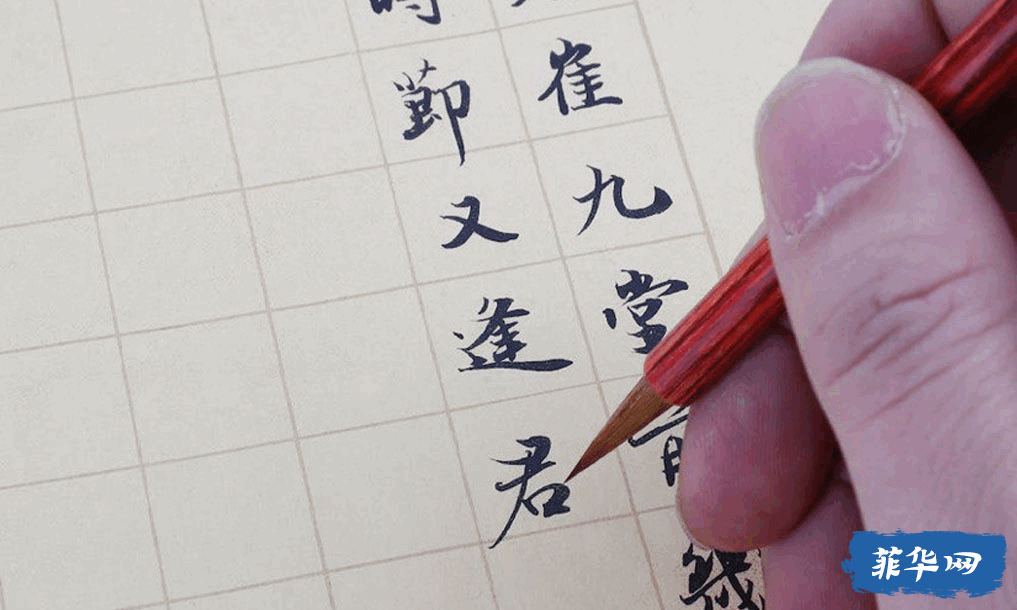 崔九堂前幾
時節又逢君
菲华网